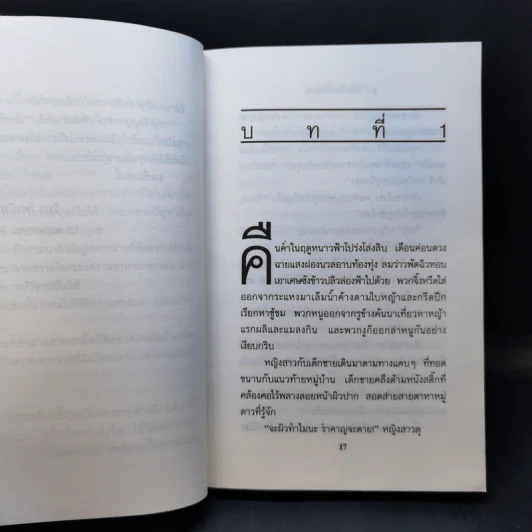 บ ท ที่ 1
คืนค่ำในฤดูหนาวฟ้าโปร่งโล่งลิบ เดือนค่อนดวง
ฉายแสงผ่องนวลอาบท้องทุ่ง ลมว่าวพัดฉิวหอบ
เอาเศษซังข้าวปลิวล่องฟ้าไปด้วย พวกจิ้งหรีดไต่
ออกจากระแหงมาเล็มน้ำค้างตามใบหญ้าและกรีดปีก
เรียกหาชู้ชม พวกหนูออกจากรูข้างคันนาเที่ยวหาหญ้า
แรกผลิและแมลงกิน และพวกงูก็ออกล่าหนูกันอย่าง
เงียบกริบ
หญิงสาวกับเด็กชายเดินมาตามทางแคบๆ ที่ทอด
ขนานกับแนวท้ายหมู่บ้าน เด็กชายคลึงด้ามหนังสติ๊กที่
คล้องคอไว้พลางลอยหน้าผิวปาก สอดส่ายสายตาหาหมู่
ดาวที่รู้จัก
"จะผิวทำไมนะ รำคาญจะตาย!" หญิงสาวดุ
17